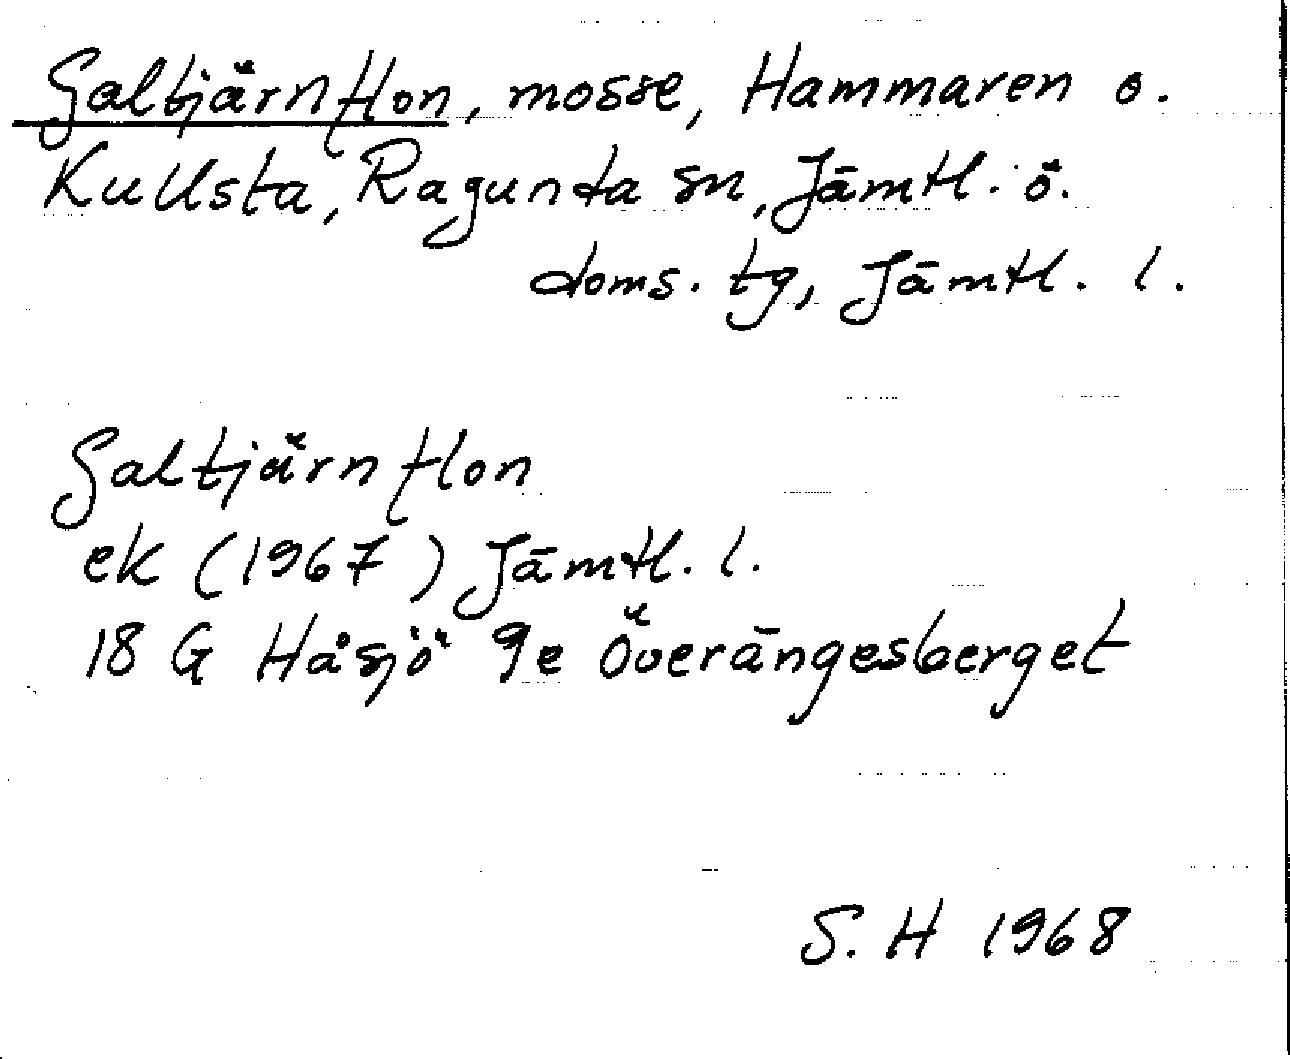 Galtjärnflon, mosse, Hammaren o.
Kullsta, Ragunda sn, Jämtl. ö.
doms. tg, Jämtl. l.
Galtjärnflon
ek (1967) Jämtl. l.
18 G Håsjö 9e Överängesberget
S. H 1968